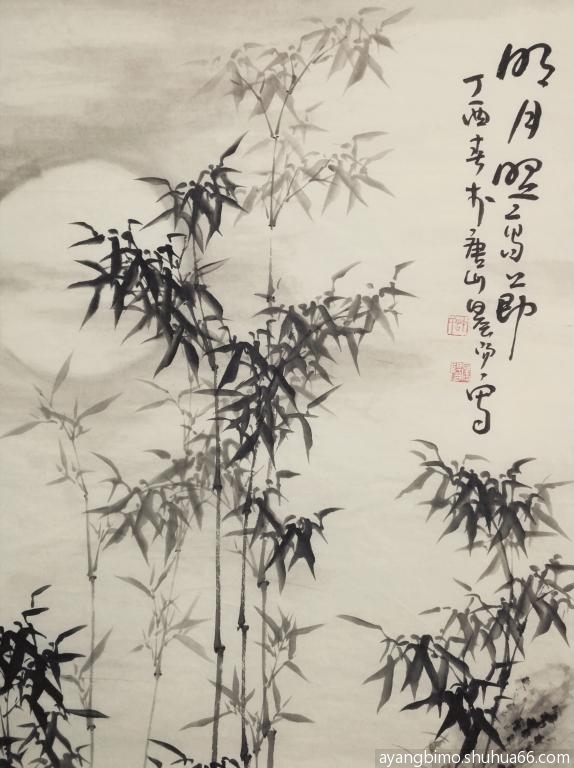 明月照高節
丁酉春於唐山晨阳写
ayangbimo.shuhua66.com